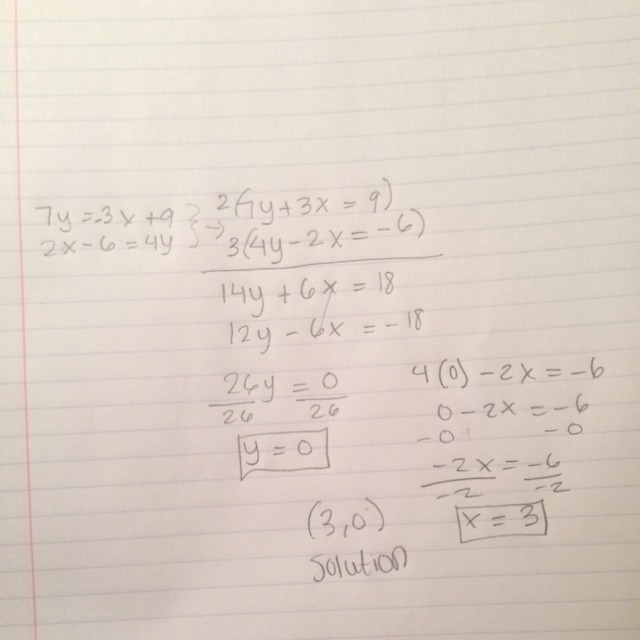 7y = -3x + 9
2x - 6 = 4y
2(7y + 3x = 9)
3(4y - 2x = -6)
14y + 6x = 18
12y - 6x = -18
26y = 0
26 26
y = 0
4(0) - 2x = -6
0 - 2x = -6
-0 -0
-2x = -6
-2 -2
x = 3
(3,0)
solution